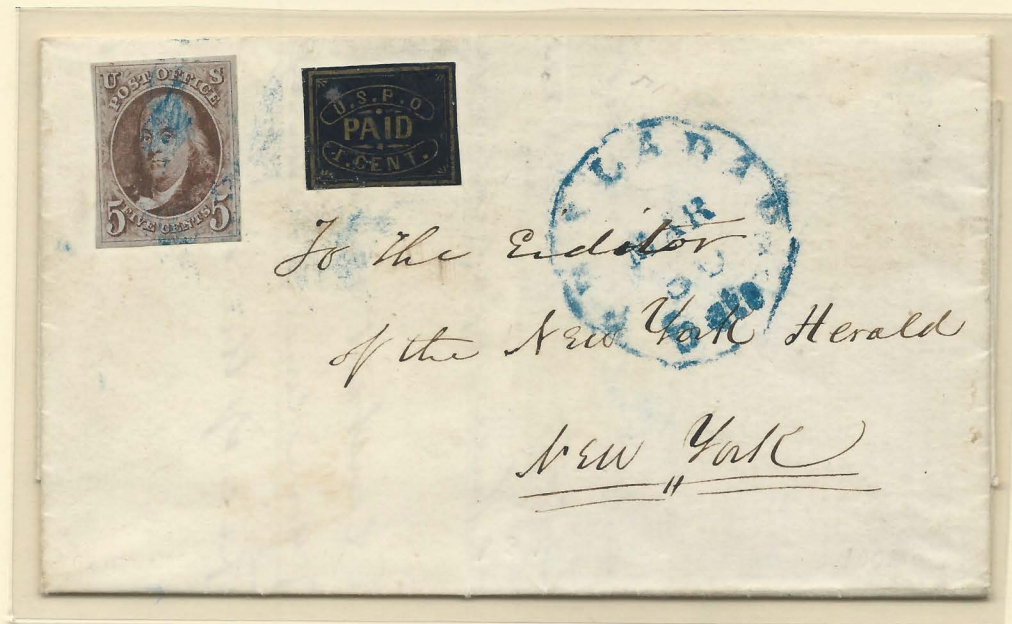 U S
POST OFFICE
5 FIVE CENTS 5
U.S.P.O
PAID
1.CENT.
LADA
MAR
To the Eeditor
of the New York Herald
New York